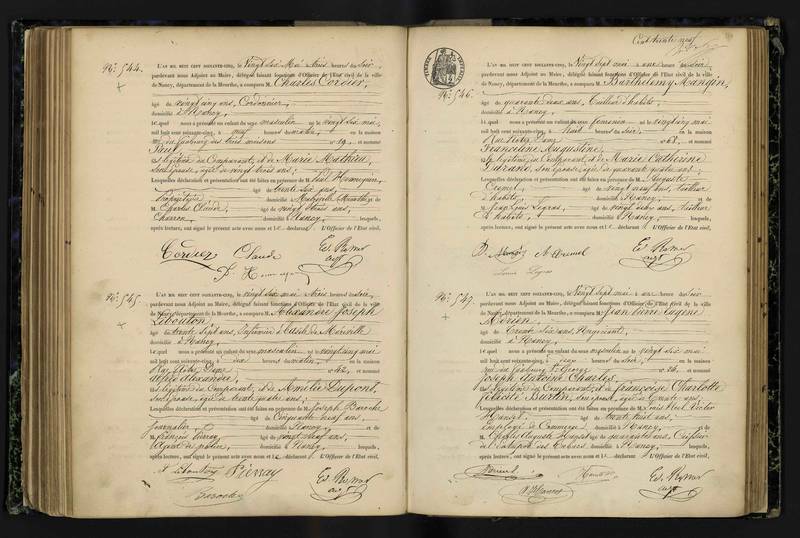 No. 544.
L'AN MIL HUIT CENT SOIXANTE-CINQ, le Vingt six Mai à trois heures du soir,
pardevant nous Adjoint au Maire, délégué faisant fonctions d'Officier de l'Etat civil de la ville
de Nancy, département de la Meurthe, a comparu M. Charles Cordier,
âgé de vingt cinq ans, Cordonnier,
domicilié à Nancy,
lequel nous a présenté un enfant du sexe masculin né le vingt six mai,
mil huit cent soixante-cinq, à neuf heures du matin, en la maison
rue du faubourg des trois maisons no 19, et nommé
Paul,
fils légitime du Comparant, et de Marie Mathieu,
son épouse, âgée de vingt trois ans;
Lesquelles déclaration et présentation ont été faites en présence de M. Paul Hennequin,
âgé de trente six ans,
Propriétaire domicilié à
M. Charles Claude, âgé de vingt trois ans,
Charron domicilié à Nancy, lesquels,
après lecture, ont signé le présent acte avec nous et le déclarant. L'Officier de l'Etat civil,
Cordier Claude
No. 545.
L'AN MIL HUIT CENT SOIXANTE-CINQ, le vingt six mai à trois heures du soir,
pardevant nous Adjoint au Maire, délégué faisant fonctions d'Officier de l'Etat civil de la ville
de Nancy, département de la Meurthe, a comparu M. Alexandre Joseph
âgé de trente sept ans,
domicilié à Nancy,
lequel nous a présenté un enfant du sexe masculin né le vingt cinq mai
mil huit cent soixante-cinq, à six heures du matin, en la maison
Rue Notre Dame no 42, et nommé
Alfred Alexandre,
fils légitime du Comparant, et de Amélie Dupont,
son épouse, âgée de trente quatre ans;
Lesquelles déclaration et présentation ont été faites en présence de M. Joseph
âgé de Cinquante neuf ans,
Journalier domicilié à Nancy et de
M. François Pierray, âgé de vingt neuf ans,
Agent de police, domicilié à Nancy, lesquels,
après lecture, ont signé le présent acte avec nous et le déclarant. L'Officier de l'Etat civil,
Pierray
Cent trente neuf
No. 546.
L'AN MIL HUIT CENT SOIXANTE-CINQ, le Vingt sept mai à une heure du soir,
pardevant nous Adjoint au Maire, délégué faisant fonctions d'Officier de l'Etat civil de la ville
de Nancy, département de la Meurthe, a comparu M. Barthélemy Mangin,
âgé de quarante deux ans, Tailleur d'habits,
domicilié à Nancy,
lequel nous a présenté un enfant du sexe féminin né le vingt cinq mai
mil huit cent soixante-cinq, à huit heures du soir, en la maison
Rue Notre Dame no 68, et nommé
Francéline Augustine,
fille légitime du Comparant, et de Marie Catherine
Durand, son épouse, âgée de quarante quatre ans;
Lesquelles déclaration et présentation ont été faites en présence de M. Auguste
âgé de vingt neuf ans, tailleur
d'habits, domicilié à Nancy, et de
M. Jean Louis Legros, âgé de vingt ans, tailleur
d'habits, domicilié à Nancy, lesquels,
après lecture, ont signé le présent acte avec nous et le déclarant. L'Officier de l'Etat civil,
Louis Legros
No. 547.
L'AN MIL HUIT CENT SOIXANTE-CINQ, le Vingt sept mai à une heure du soir
pardevant nous Adjoint au Maire, délégué faisant fonctions d'Officier de l'Etat civil de la ville
de Nancy, département de la Meurthe, a comparu M. Jean Pierre Eugène
âgé de trente six ans, Négociant,
domicilié à Nancy,
lequel nous a présenté un enfant du sexe masculin né le vingt six mai
mil huit cent soixante-cinq, à heures du soir, en la maison
rue du faubourg St Georges no 26, et nommé
Joseph Antoine Charles,
fils légitime du Comparant, et de Françoise Charlotte
Félicité son épouse, âgée de trente ans;
Lesquelles déclaration et présentation ont été faites en présence de M. Louis Paul Victor
âgé de trente huit ans,
Employé de Commerce domicilié à Nancy, et de
M. Charles Auguste âgé de quarante ans,
domicilié à Nancy, lesquels,
après lecture, ont signé le présent acte avec nous et le déclarant. L'Officier de l'Etat civil,